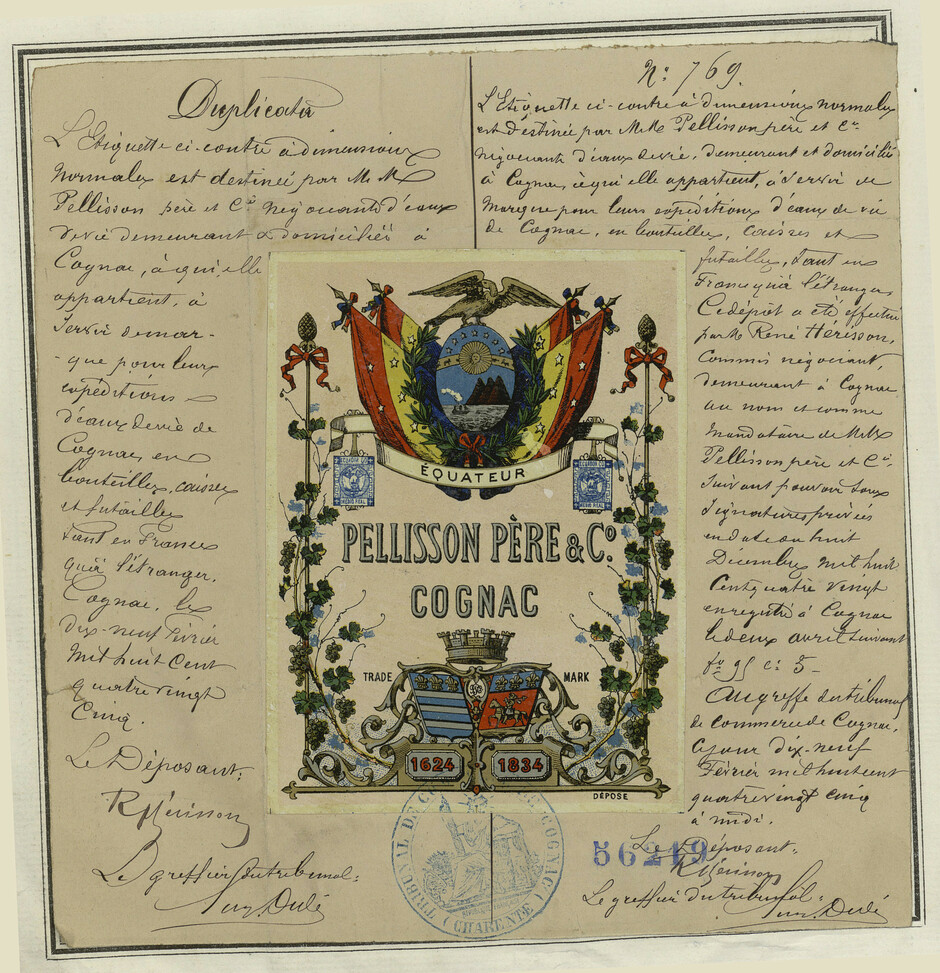 Duplicata
L'Etiquette ci-contre à dimensions
normales est destinée par M.M.
Pellisson père et Cie négociants d'eaux
de vie demeurant & domiciliés à
Cognac, à qui elle
appartient, à
servir de mar-
-que pour leurs
expéditions
d'eaux de vie de
Cognac, en
bouteilles, caisses
et futailles
tant en France
qu'à l'étranger.
Cognac, le
dix-neuf février
mil huit cent
quatre vingt
cinq.
Le Déposant:
R Hérisson
Le greffier du tribunal:
N° 769.
L'Etiquette ci-contre à dimensions normales
est destinée par M.M. Pellisson père et Cie
négociants d'eaux de vie, demeurant et domiciliés
à Cognac, à qui elle appartient, à servir de
marque pour leurs expéditions d'eaux de vie
de Cognac, en bouteilles, caisses et
futailles, tant en
France qu'à l'étranger.
Ce dépôt a été effectué
par M. René Hérisson,
commis négociant,
demeurant à Cognac
au nom et comme
mandataire de M.M.
Pellisson père et Cie
suivant pouvoir sous
signatures privées
en date du huit
Décembre mil huit
cent quatre vingt
enregistré à Cognac
le deux avril suivant
fo 95 c. 5-
Au greffe du tribunal
de commerce de Cognac,
ce jour dix-neuf
Février mil huit cent
quatre vingt cinq
à midi.
Le Déposant:
R Hérisson
Le greffier du tribunal:
ÉQUATEUR
PELLISSON PÈRE & Co.
COGNAC
TRADE MARK
1624 1834
DÉPOSÉ
56219
TRIBUNAL DE COMMERCE DE COGNAC
(CHARENTE)